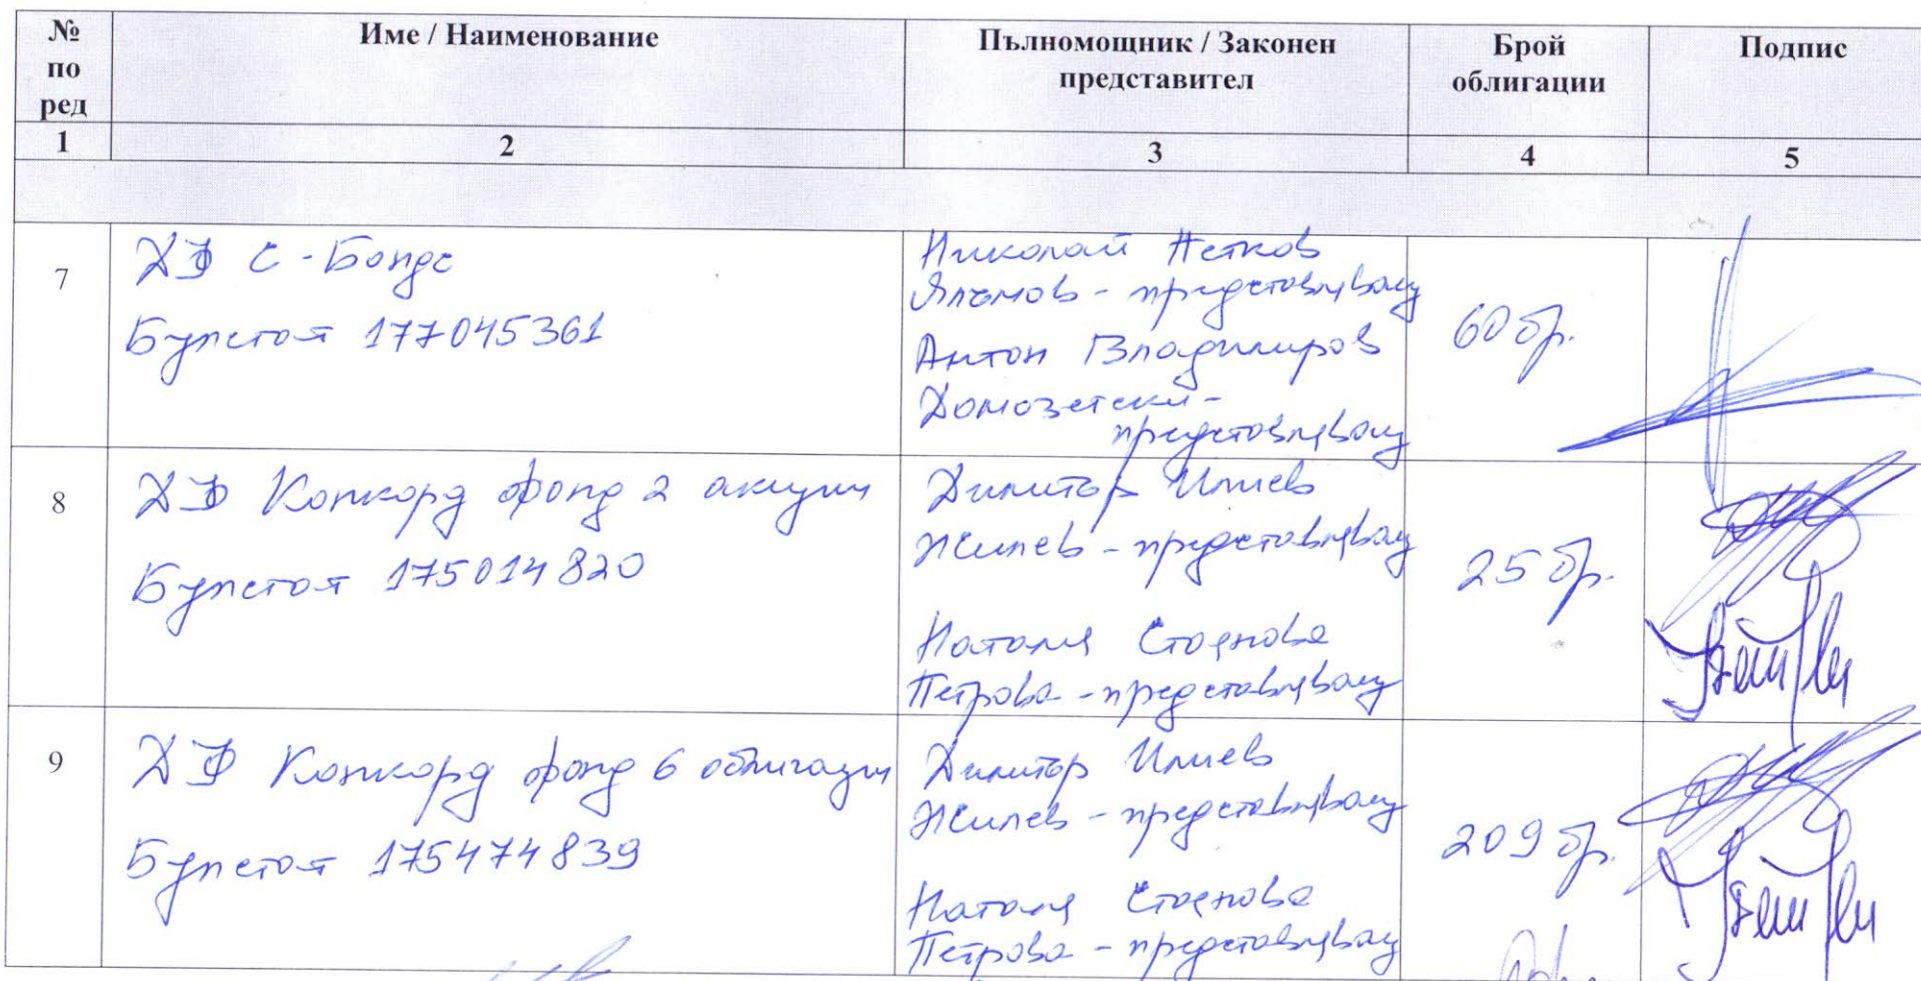 №
по
ред
Име / Наименование
Пълномощник / Законен
представител
Брой
облигации
Подпис
1
2
3
4
5
7
ДФ С-Бондс
Булстат 177045361
Николай Петков
Ялъмов - представляващ
Антон Владимиров
Домозетски -
представляващ
60 бр.
8
ДФ Конкорд фонд 2 акции
Булстат 175014820
Димитър Илиев
Жилев - представляващ
Наталия Стоянова
Петрова - представляващ
25 бр.
9
ДФ Конкорд фонд 6 облигации
Булстат 175474839
Димитър Илиев
Жилев - представляващ
Наталия Стоянова
Петрова - представляващ
209 бр.